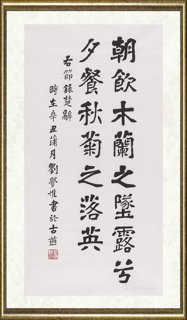 朝飲木蘭之墜露兮
夕餐秋菊之落英
右節錄楚辭
時在辛丑蒲月劉譽惟書於古燕